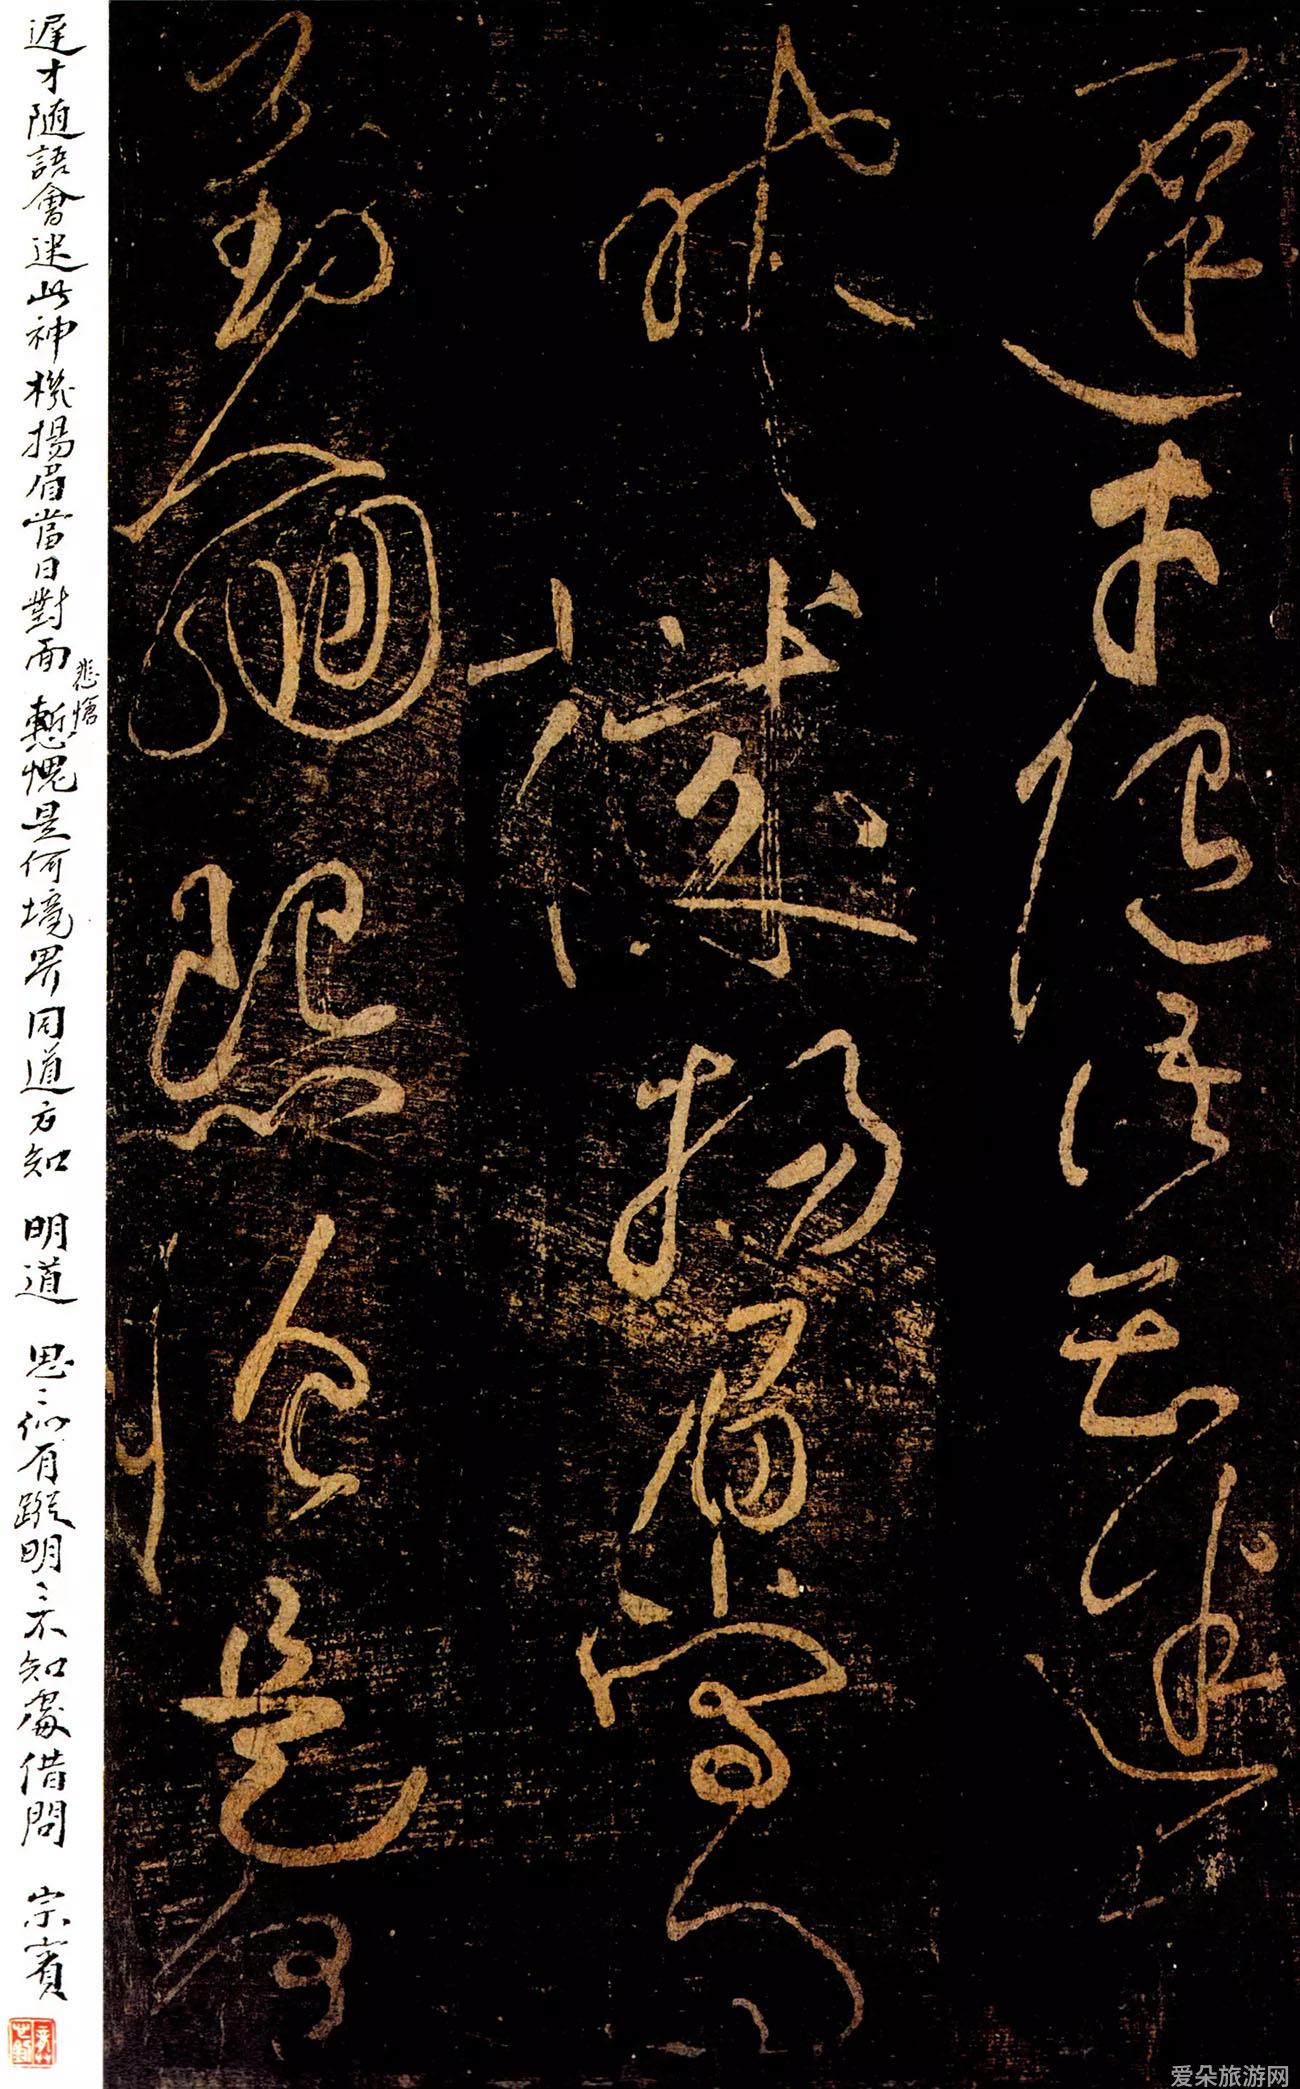 遲才随語會迷此
神機揚眉當日
對面愴是何
遲才随語會迷此神機揚眉當日對面慙愧是何境界同道方知 明道 思〻似有蹤明〻不知處借問 宗賓
悲愴
爱朵旅游网